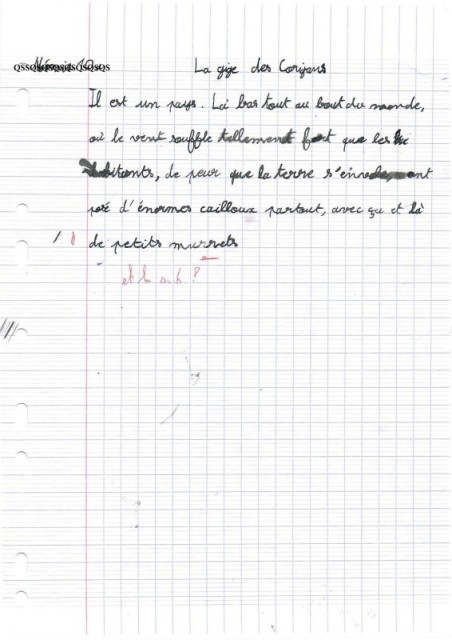 La gige des Corijans
Il est un pays. Là bas tout au bout du monde,
où le vent souffle tellement fort que les
habitants, de peur que la terre s'envole, ont
posé d'énormes cailloux partout, avec ça et là
de petits murrets
et la suite ?